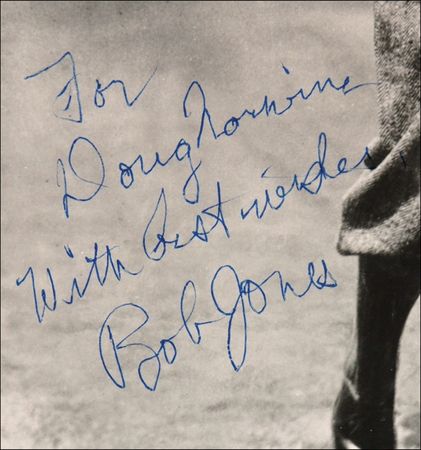 For
Doug Norwine
With best wishes,
Bob Jones